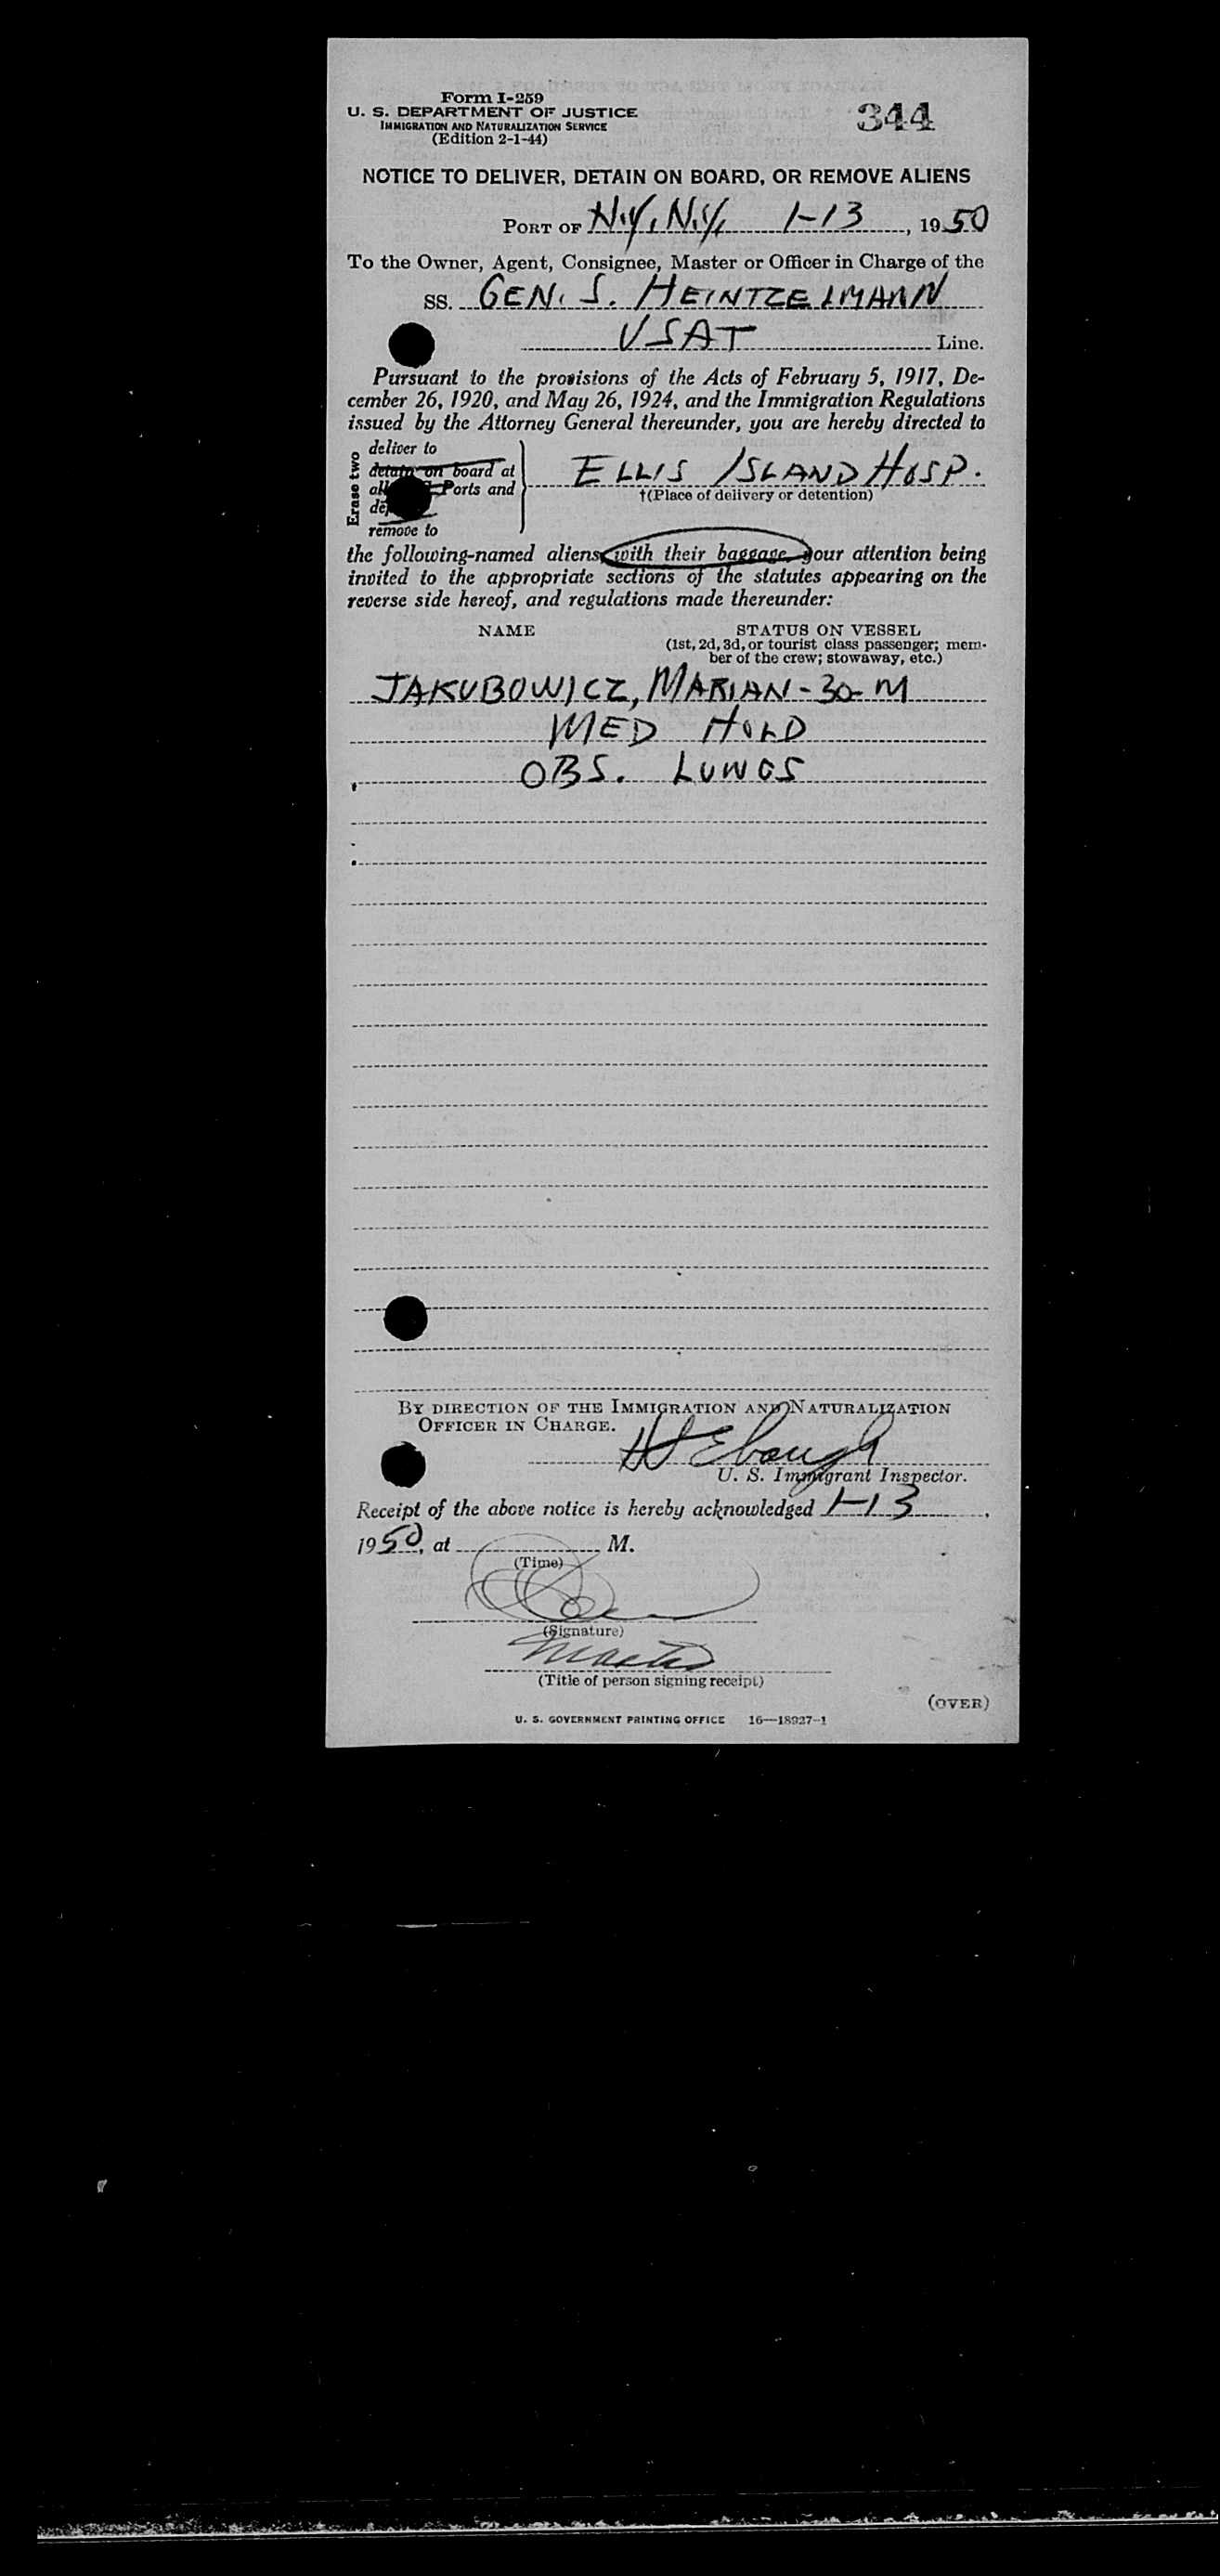 Form I-259
U. S. DEPARTMENT OF JUSTICE
IMMIGRATION AND NATURALIZATION SERVICE
(Edition 2-1-44)
344
NOTICE TO DELIVER, DETAIN ON BOARD, OR REMOVE ALIENS
PORT OF N.Y., N.Y., 1-13, 1950
To the Owner, Agent, Consignee, Master or Officer in Charge of the
SS. GEN. S. HEINTZELMANN
USAT Line.
Pursuant to the provisions of the Acts of February 5, 1917, De-
cember 26, 1920, and May 26, 1924, and the Immigration Regulations
issued by the Attorney General thereunder, you are hereby directed to
Erase two
deliver to
detain on board at
Ports and
remove to
ELLIS ISLAND HOSP.
†(Place of delivery or detention)
the following-named aliens, with their baggage, your attention being
invited to the appropriate sections of the statutes appearing on the
reverse side hereof, and regulations made thereunder:
NAME
STATUS ON VESSEL
(1st, 2d, 3d, or tourist class passenger; mem-
ber of the crew; stowaway, etc.)
JAKUBOWICZ, MARIAN - 30 - M
MED HOLD
OBS. LUNGS
BY DIRECTION OF THE IMMIGRATION AND NATURALIZATION
OFFICER IN CHARGE.
Ebaugh
U. S. Immigrant Inspector.
Receipt of the above notice is hereby acknowledged 1-13,
1950, at M.
(Time)
(Signature)
Master
(Title of person signing receipt)
(OVER)
U. S. GOVERNMENT PRINTING OFFICE 16—18927-1